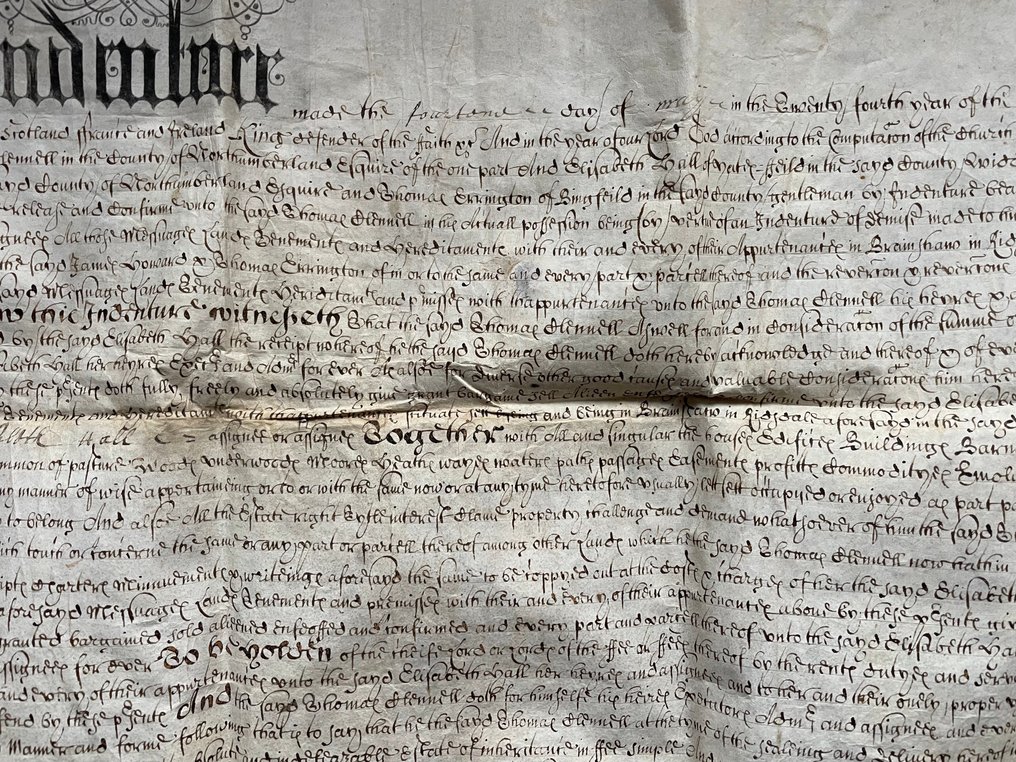 Indenture
made the fourtene day of may in the Twenty fourth year of the
Scotland ffrance and Ireland King defender of the faith &c And in the year of our Lord God according to the Computacon of the Church
Clennell in the County of Northumberland Esquire of the one part And Elisabeth Hall of in the sayd County Widd
sayd County of Northumberland Esquire and Thomas Errington of Bingfeild in the sayd County gentleman by Indenture bea
release and Confirme unto the sayd Thomas Clennell in his Actuall possession being (by vertue of an Indenture of demise made to him
Assignes All those Messuages Lands Tenements and Hereditaments with their and every of their Appurtenances in Brainshaw in Rids
the sayd James Howard & Thomas Errington of in or to the same and every part & parcell thereof and the revercon & revercons
sayd Messuages Lands Tenements Hereditamts and pmisses with thappurtenances unto the sayd Thomas Clennell his heyres &
Now this Indenture Witnesseth That the sayd Thomas Clennell Aswell for and in Consideracon of the summe of
by the sayd Elisabeth Hall the receipt whereof he the sayd Thomas Clennell doth hereby acknowledge and thereof & of eve
Elisabeth Hall her heyres Execrs and Admrs for ever As alsoe for diverse other good causes and valuable Consideracons him here
by these psents doth fully freely and absolutely give grant bargaine sell Alleen enfeoffe and confirme unto the sayd Elisabe
Tenements and Hereditaments with thappurtenances scituate lyeing and being in Brainshaw in Ridsdale aforesayd in the sayd
Elisabeth Hall assignee or assignes Together with All and singular the houses Edifices Buildings Barn
Common of pasture Woods underwoods Moores Heaths wayes waters paths passages Easements profitts Commodityes Emolu
any manner of wise appertaineing or to or with the same now or at any tyme heretofore usually lett sett occupyed or enjoyed as part p
to belong And alsoe All the Estate right Tytle interest Clame property challenge and demand whatsoever of him the sayd T
which touch or concerne the same or any part or parcell thereof among other Lands which he the sayd Thomas Clennell now hath in
scripts Charters Minnuments & writeings aforesayd the same to be coppyed out at the Costs & charges of her the sayd Elisabet
aforesayd Messuages Lands Tenements and premisses with their and every of their appurtenances above by these psents give
granted bargained sold alleened enfeoffed and confirmed and every part and parcell thereof unto the sayd Elisabeth Ha
assignes for ever To be Holden of the cheife Lord or Lords of the ffee or ffees thereof by the rents dutyes and serv
and every of their appurtenances unto the sayd Elisabeth Hall her heyres and assignes and to her and their onely proper u
And the sayd Thomas Clennell doth for himselfe his heires Executors Admrs and assignes and every
fend by these psents
manner and forme following that is to say that he the sayd Thomas Clennell at the tyme of the sealeing and delivery hereof
absolute and indefeazable Estate of inheritance in ffee simple